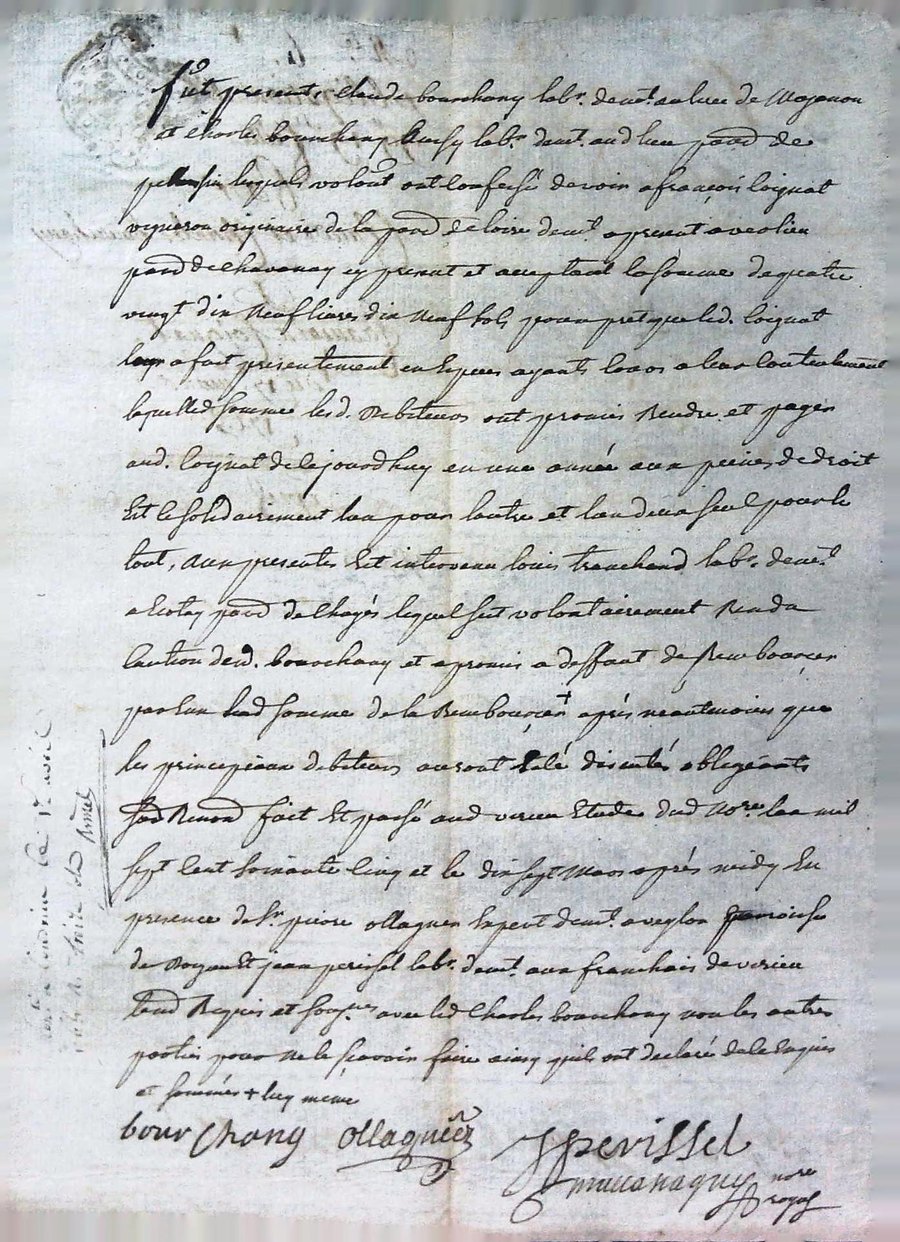 fut present Claude bourchany labr. demt. au lieu de Mazonon
et Charles bourchany aussy labr. demt. aud lieu parr de
pellussin lesquels volont ont confessé devoir a françois loignat
vigneron originaire de la parr de loire demt. a present a verlieu
parr de Chavanay cy present et acceptant la somme de quatre
vingt dix neuf livres dix neuf sols pour pret que led. loignat
leur a fait presentement en especes ayants cours a leur contentement
laquelled somme lesd. debiteurs ont promis rendre et payer
aud. loignat de cejourdhuy en une année aux peines de droit
Est ce solidairement lun pour lautre et lun deux seul pour le
tout, aux presentes Est intervenu louis tranchand labr. demt.
a Ecotay parr de Chayés lequel sest volontairement rendu
caution desd. bourchany et a promis a deffaut de rembourcer
par eux lad somme de la rembourcer + après néantmoins que
les principeaux debiteurs auront Eté discutés obligeants
sod Renond fait Et passé aud virieu Etude dud Nore. lan mil
sept cent soixante cinq et le dix sept Mars après midy En
presence de sr. pierre ollagner Expert demt. a veylon parroisse
de Royau Et jean perissel labr. demt. aux franchais de virieu
temd Requis et sousnes avec led Charles bourchany non les autres
parties pour ne le sçavoir faire ainsy quils ont declaré de ce Enquis
et sommés + luy même
bourchany ollagnier
J perissel
nore
royal